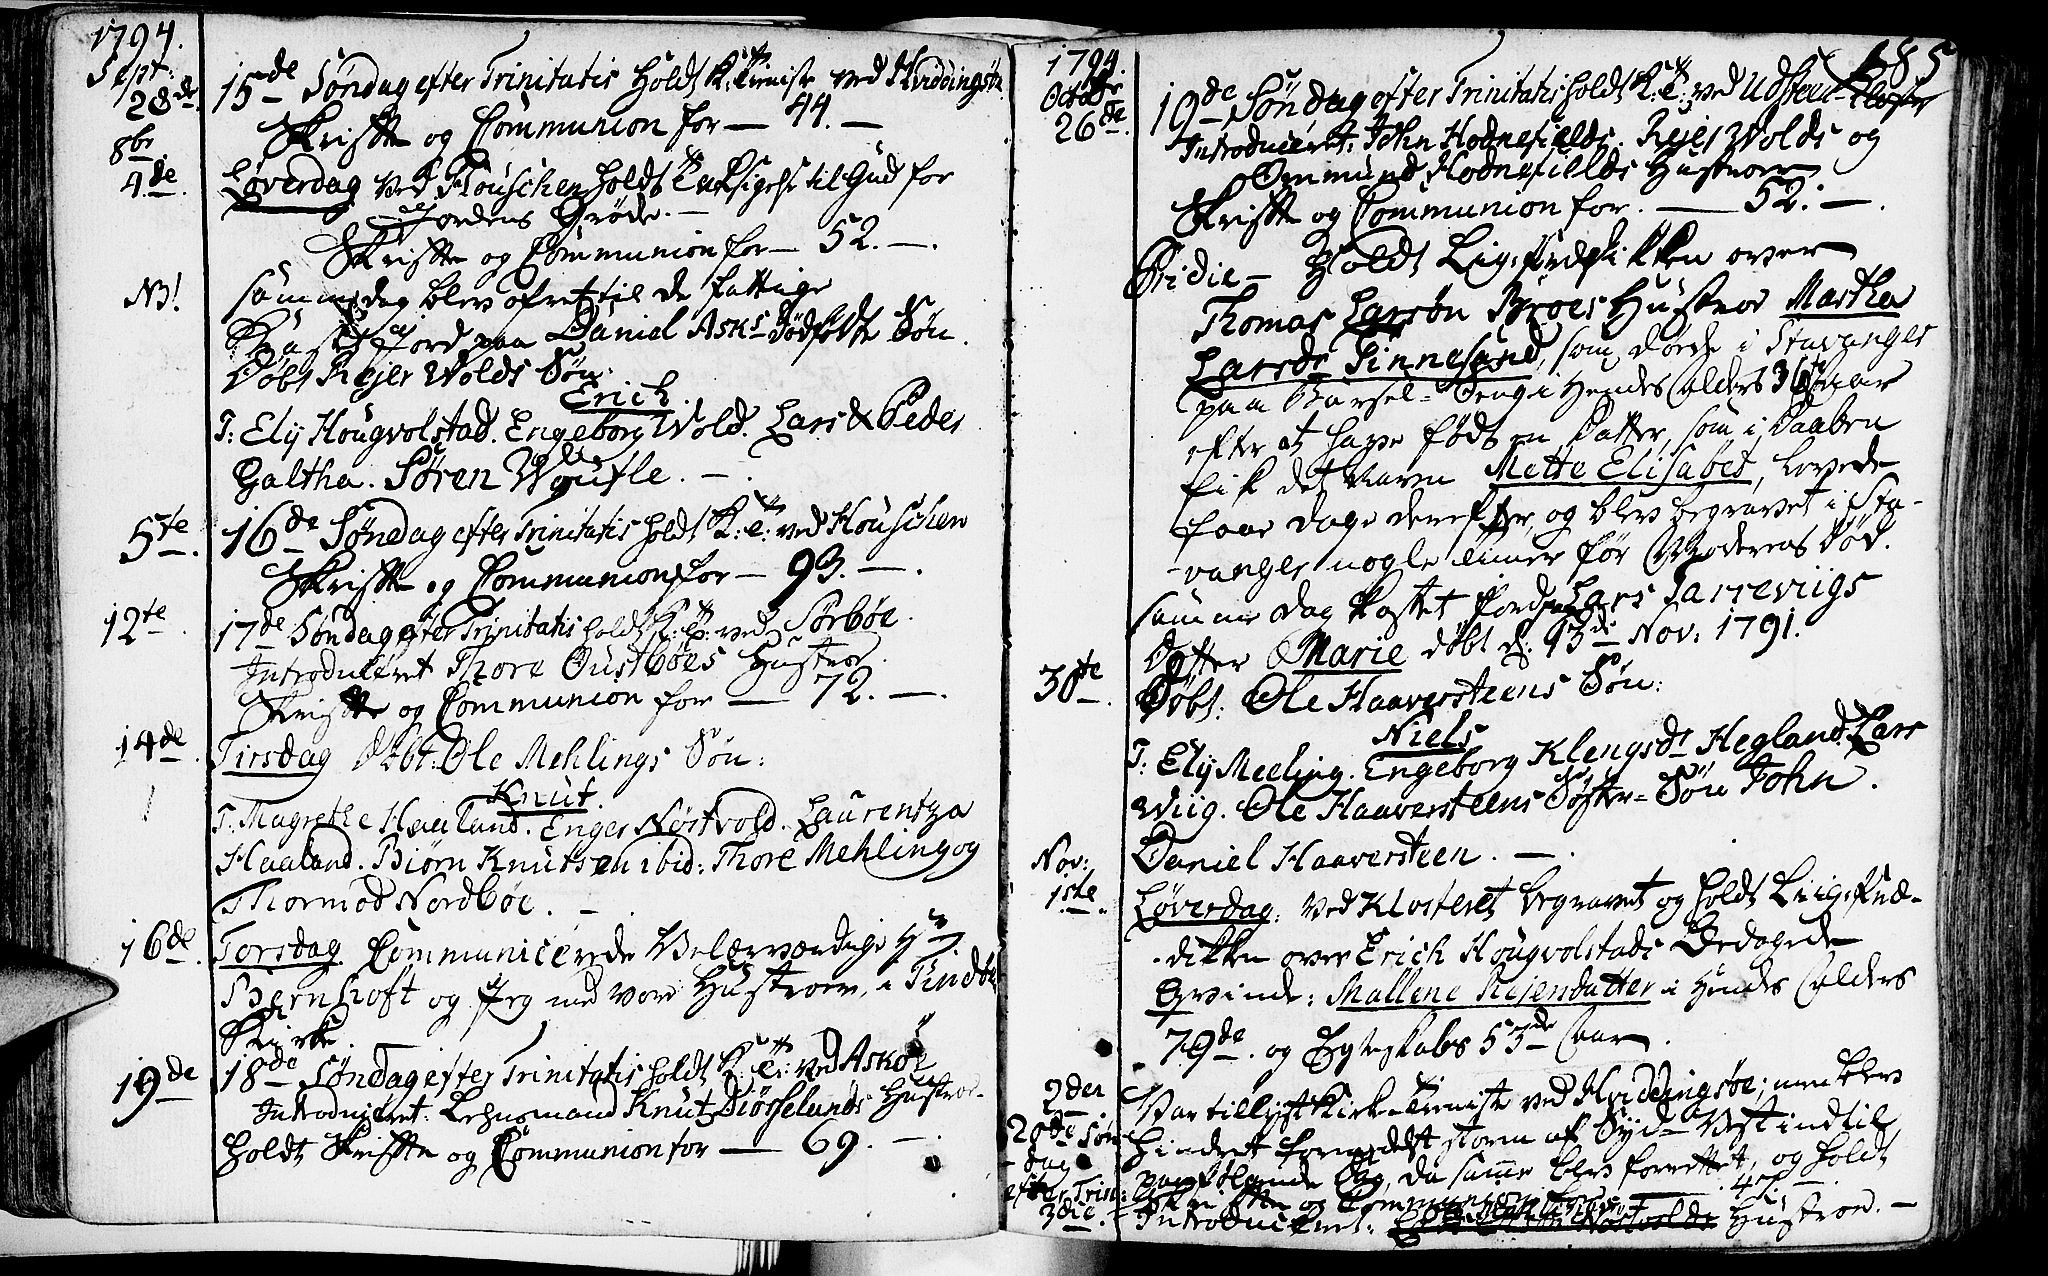 1794.
Sept:
28de
15de Søndag efter Trinitatis Holdt K: Tieniste ved Hviddingsøe
Skrifte og Communion for — 44. —
8br
4de
Løverdag ved Houschen holdt Taksigelse til Gud for
Jordens Grøde. —
Skrifte og Communion for — 52. —.
NB!
samme dag blev ofret til de fattige
Kastet Jord paa Daniel Asks dødfødte Søn.
Døbt Rejer Wolds Søn:
Erich.
T: Elj Hougvolstad. Engeborg Wold. Lars & Peder
Galtha. Søren Woufle. —.
5te.
16de Søndag efter Trinitatis holdt K: T: ved Houschen
Skrifte og Communion for — 93. —.
12te.
17de Søndag efter Trinitatis holdt K: T: ved Sørbøe.
Introduceret Thore Oustbøes Hustroe.
Skrifte og Communion for — 72. —.
14de
Tirsdag Døbt: Ole Mehlings Søn:
Knut.
T: Magrethe Haaland. Enger Nøstvold. Laurentza
Haaland. Biørn Knutsen ibid: Thore Mehling og
Thormod Nordbøe. —
16de
Torsdag Communicerede Velærværdige Hr
Bernhoft og Jeg med vore Hustroer, i Findøe
Kirke. —
19de
18de Søndag efter Trinitatis holdt K: T: ved Askøe
Introduceret: Lehnsmand Knut Diøsselands Hustroe.
holdt Skrifte og Communion for — 69. —.
1794.
185
Octobr
26de.
19de Søndag efter Trinitatis holdt K: T: ved Udsteen-Closter
Introduceret: John Hodnefields. Rejer Wolds og
Ommund Hodnefields Hustroer
Skrifte og Communion for. — 52. —.
Pridie — Holdt Lig-prædikken over
Thomas Larsøn Broes Hustroe Martha
Larsdr Finnesand, som døde i Stavanger
paa Barsel-Seng i Hendes alders 36te aar
efter at have født en Datter, som i Daaben
fik det Navn Mette Elisabet, levede
faae dage derefter, og blev begravet i Sta-
vanger nogle timer før Moderens død.
samme dag kastet Jord paa Lars Tarreviigs
Datter Marie døbt d: 13de Nov: 1791.
30te
Døbt: Ole Haaversteens Søn:
Niels
T: Elj Meeling. Engeborg Klengsdr Hegland. Lars
Wiig. Ole Haaversteens Søster-Søn John.
Daniel Haaversteen. —.
Nov:
1ste.
Løverdag: ved Klosteret begravet og holdt Liig-præ-
dikken over Erich Hougvolstads Bedagede
Qvinde: Mallene Rejersdatter i Hendes Alders
79de. og Egteskabs 53de Aar.
2den
20de Søn-
dag
efter Trin:
3die.
Var tillyst Kirke-Tieniste ved Hviddingsøe; men blev
hindret formedelst storm af Syd-Vest indtil
paafølgende dag, da samme blev forrettet, og holdt
Skrifte og Communion
Introduceret: Hustroe. —